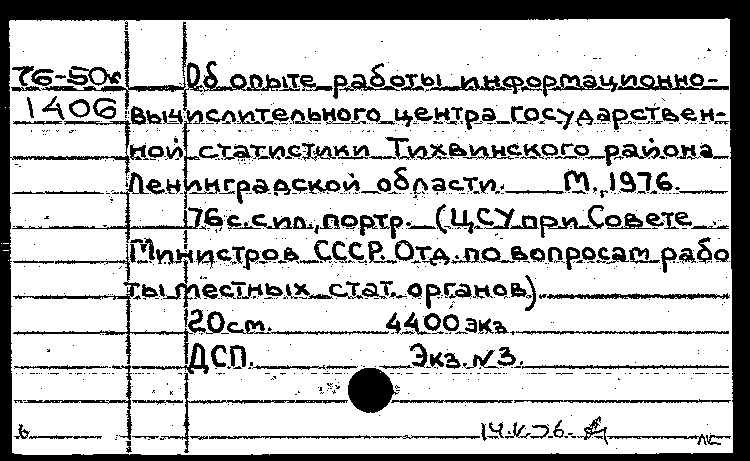 76-50к Об опыте работы информационно-
1406 вычислительного центра государствен-
ной статистики Тихвинского района
Ленинградской области. М., 1976.
76 с. с ил., портр. (ЦСУ при Совете
Министров СССР. Отд. по вопросам рабо
ты местных стат. органов)
20 см. 4400 экз
ДСП. Экз. №3.
14.V.76.